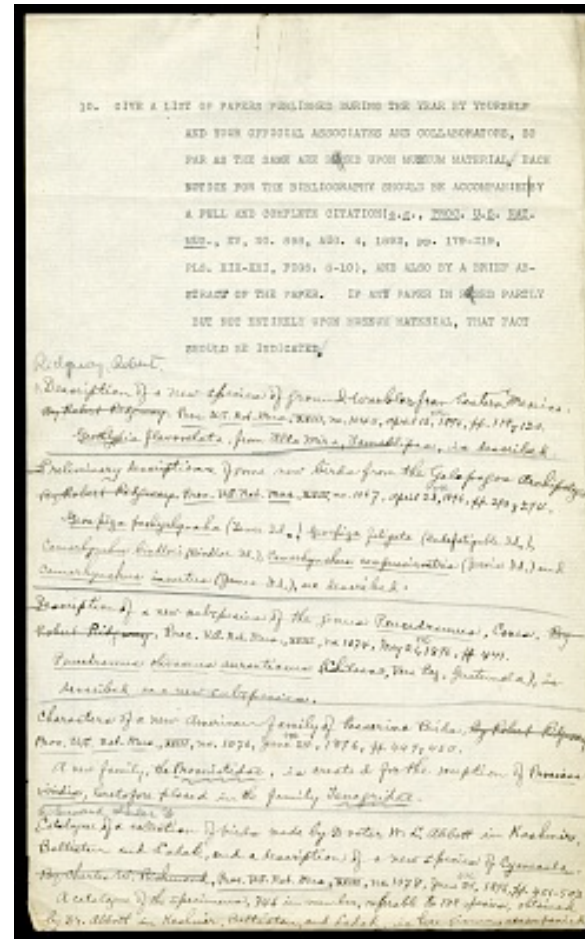 10. GIVE A LIST OF PAPERS PUBLISHED DURING THE YEAR BY YOURSELF
AND YOUR OFFICIAL ASSOCIATES AND COLLABORATORS, SO
FAR AS THE SAME ARE BASED UPON MUSEUM MATERIAL, EACH
NOTICE FOR THE BIBLIOGRAPHY SHOULD BE ACCOMPANIED BY
A FULL AND COMPLETE CITATION (e.g., PROC. U.S. NAT.
MUS., XV, NO. 898, AUG. 4, 1892, pp. 178-218,
PLS. XIX-XXI, FIGS. 6-10), AND ALSO BY A BRIEF AB-
STRACT OF THE PAPER. IF ANY PAPER IS BASED PARTLY
BUT NOT ENTIRELY UPON MUSEUM MATERIAL, THAT FACT
SHOULD BE INDICATED
Ridgway, Robert.
Description of a new species of ground warbler from Eastern Mexico.
By Robert Ridgway. Proc. U.S. Nat. Mus., XVIII, no. 1896, pp. 119, 120.
Geothlypis flavovelata, from Alta Mira, Tamaulipas, is described
Preliminary descriptions of some new birds from the Galapagos Archipelago
By Robert Ridgway. Proc. U.S. Nat. Mus., XVIII, no. 1067, April 23, 1896, pp. 293, 294.
Geospiza pachyrhyncha (Tower Id.), Geospiza fatigata (Indefatigable Id.),
Camarhynchus bindloei (Bindloe Id.), Camarhynchus compressirostris (Jervis Id.) and
Camarhynchus incertus (James Id.), are described.
Description of a new subspecies of the genus Peucedramus, Coues. By
Robert Ridgway. Proc. U.S. Nat. Mus., XVIII, no. 1074, May 1896, pp. 441.
Peucedramus olivaceus aurantiacus Vera Paz, Guatemala), is
described as a new subspecies.
Characters of a new American family of Passerine Birds, by Robert Ridgway
Proc. U.S. Nat. Mus., XVIII, no. 1076, June 1896, pp. 449, 450.
A new family, the Procniatidae, is created for the reception of Procnias
viridis, heretofore placed in the family Tanagridae.
Catalogue of a collection of birds made by Doctor W. L. Abbott in Kashmir,
Baltistan and Ladak, and a description of a new species of Cyanecula.
By Charles W. Richmond, Proc. U.S. Nat. Mus., XVIII, no. 1078, June 1896, pp. 451-503
A catalogue of the specimens, 746 in number, referable to species, obtained
by Dr. Abbott in Kashmir, Baltistan, and Ladak, is here given, accompanied